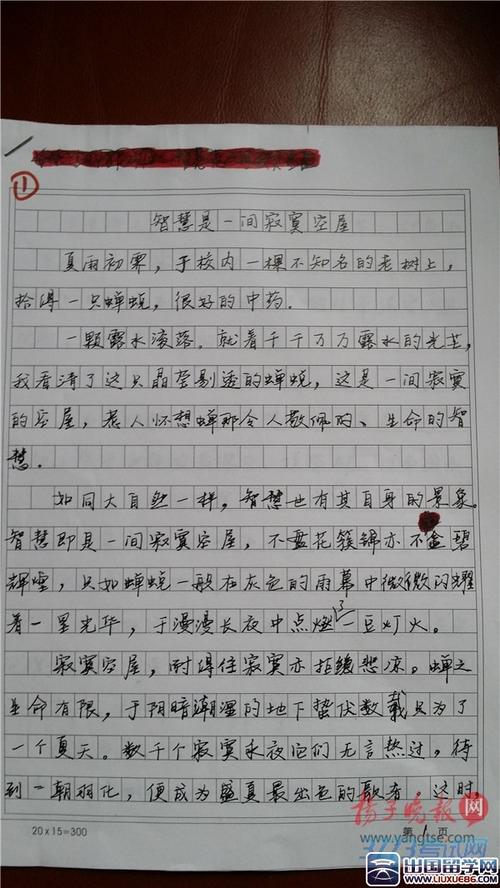 ①
智慧是一间寂寞空屋
夏雨初霁，于校内一棵不知名的老树上，
拾得一只蝉蜕，很好的中药。
一颗露水滚落。就着千千万万露水的光芒，
我看清了这只晶莹剔透的蝉蜕，这是一间寂寞
的空屋，惹人怀想蝉那令人敬佩的、生命的智
慧.
如同大自然一样，智慧也有其自身的景象。
智慧即是一间寂寞空屋，不盡花簇锦亦不金碧
辉煌，只如蝉蜕一般在灰色的雨幕中微微闪耀
着一星光华，于漫漫长夜中点燃了一豆灯火。
寂寞空屋，耐得住寂寞亦拒绝悲凉。蝉之
生命有限，于阴暗潮湿的地下蛰伏数载只为了
一个夏天。数千个寂寞永夜它们无言熬过，待
到一朝羽化，便成为盛夏最出色的歌者，这时
20×15=300
第1页
扬子晚报网
www.yangtse.com
考试网
出国留学网
www.liuxue86.com